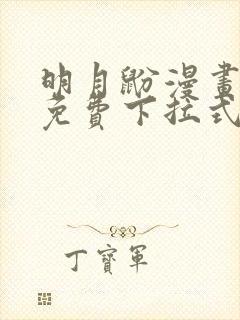 明月鼢漫畫
免費下拉式
丁寶軍